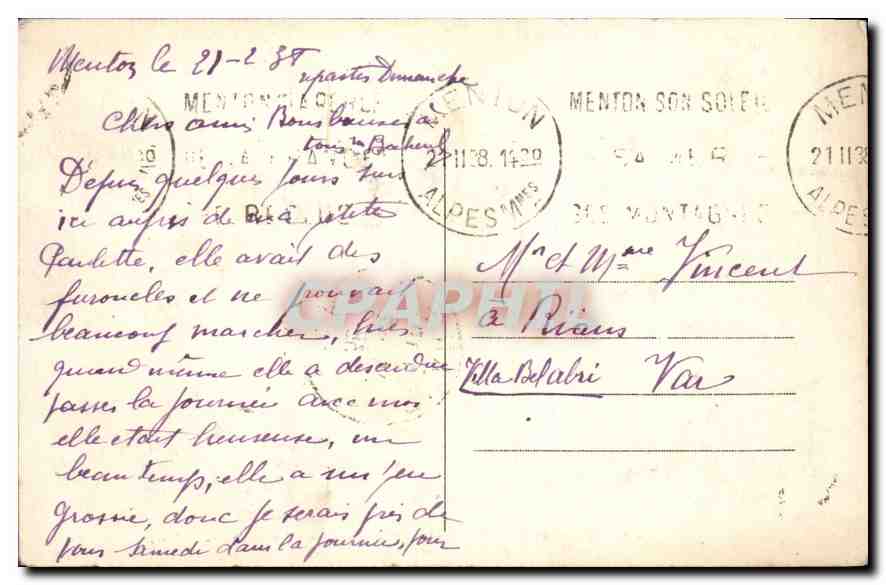 Menton le 21-2 38
repartis Dimanche
Chers amis
tous
Depuis quelques jours suis
ici aupris de ma petite
Paulette, elle avait des
furoncles et ne pouvait
beaucoup marcher, mais
quand même elle a descendue
passer la journée avec moi
elle etait heureuse, un
beau temps, elle a un peu
grossie, donc je serais près de
vous samedi dans la journée, pour
MENTON SON SOLEIL
SA MER
SES MONTAGNES
MENTON
21 II 38. 14 30
ALPES Mmes
MEN
21 II 38
ALPES
Mr et Mme Vincent
à Rians
Villa Bel abri Var
CPAPHIL